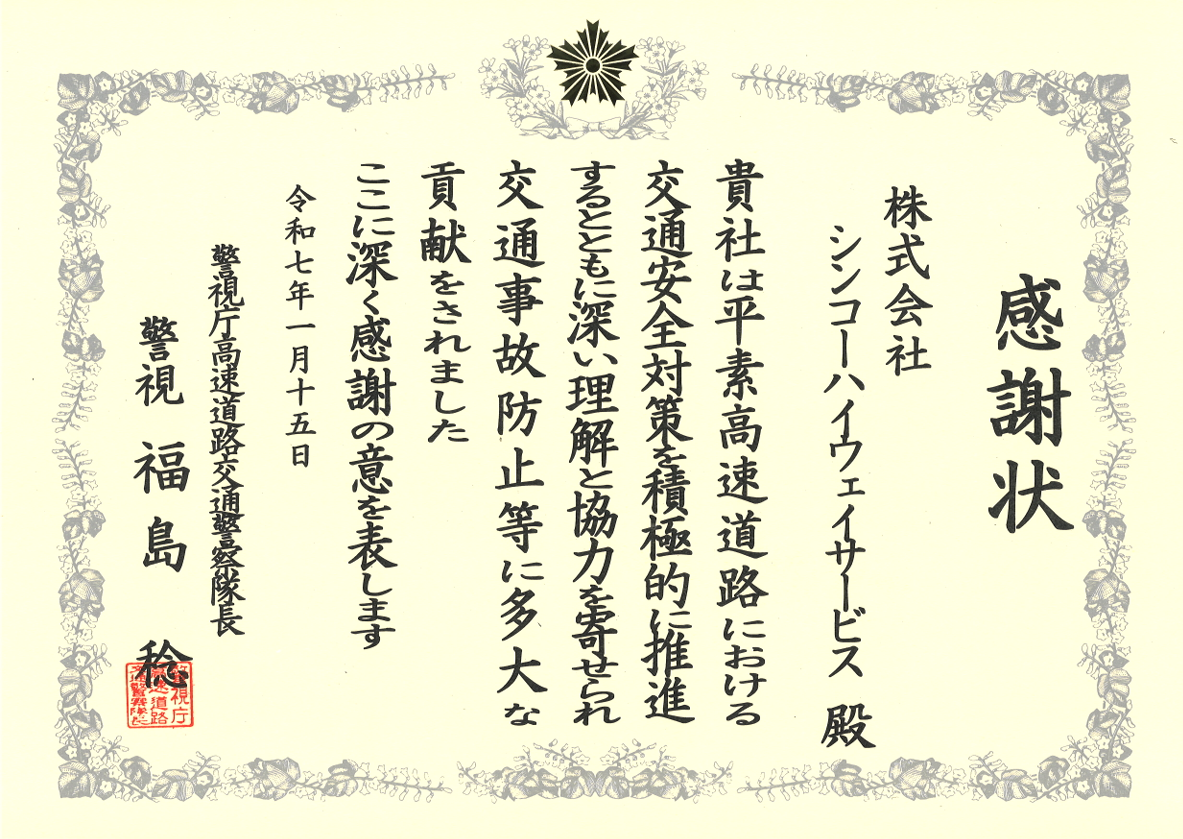 感謝状
株式会社
シンコーハイウェイサービス 殿
貴社は平素高速道路における
交通安全対策を積極的に推進
するとともに深い理解と協力を寄せられ
交通事故防止等に多大な
貢献をされました
ここに深く感謝の意を表します
令和七年一月十五日
警視庁高速道路交通警察隊長
警視 福島 稔
警視庁
高速道路
交通警察隊長